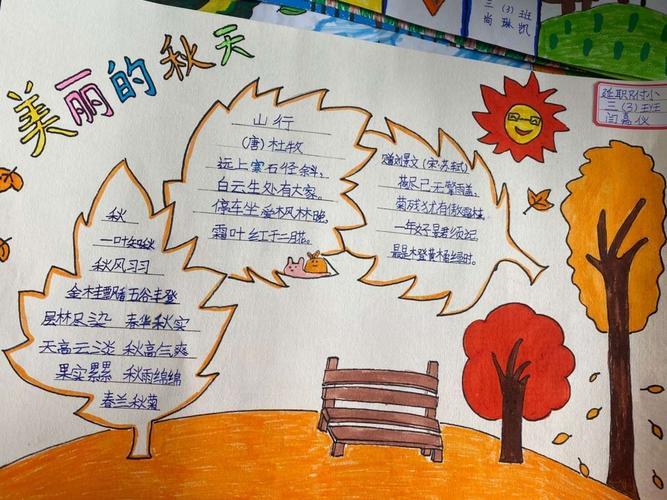 三（3）班
尚琳凯
美丽的秋天
延职附小
三（3）班
闫嘉仪
山行
（唐）杜牧
远上寒石径斜，
白云生处有大家。
停车坐爱枫林晚，
霜叶红于二月花。
赠刘景文（宋·苏轼）
荷尽已无擎雨盖，
菊残犹有傲霜枝。
一年好景君须记，
最是橙黄橘绿时。
秋
一叶知秋
秋风习习
金桂飘香五谷丰登
层林尽染 春华秋实
天高云淡 秋高气爽
果实累累 秋雨绵绵
春兰秋菊